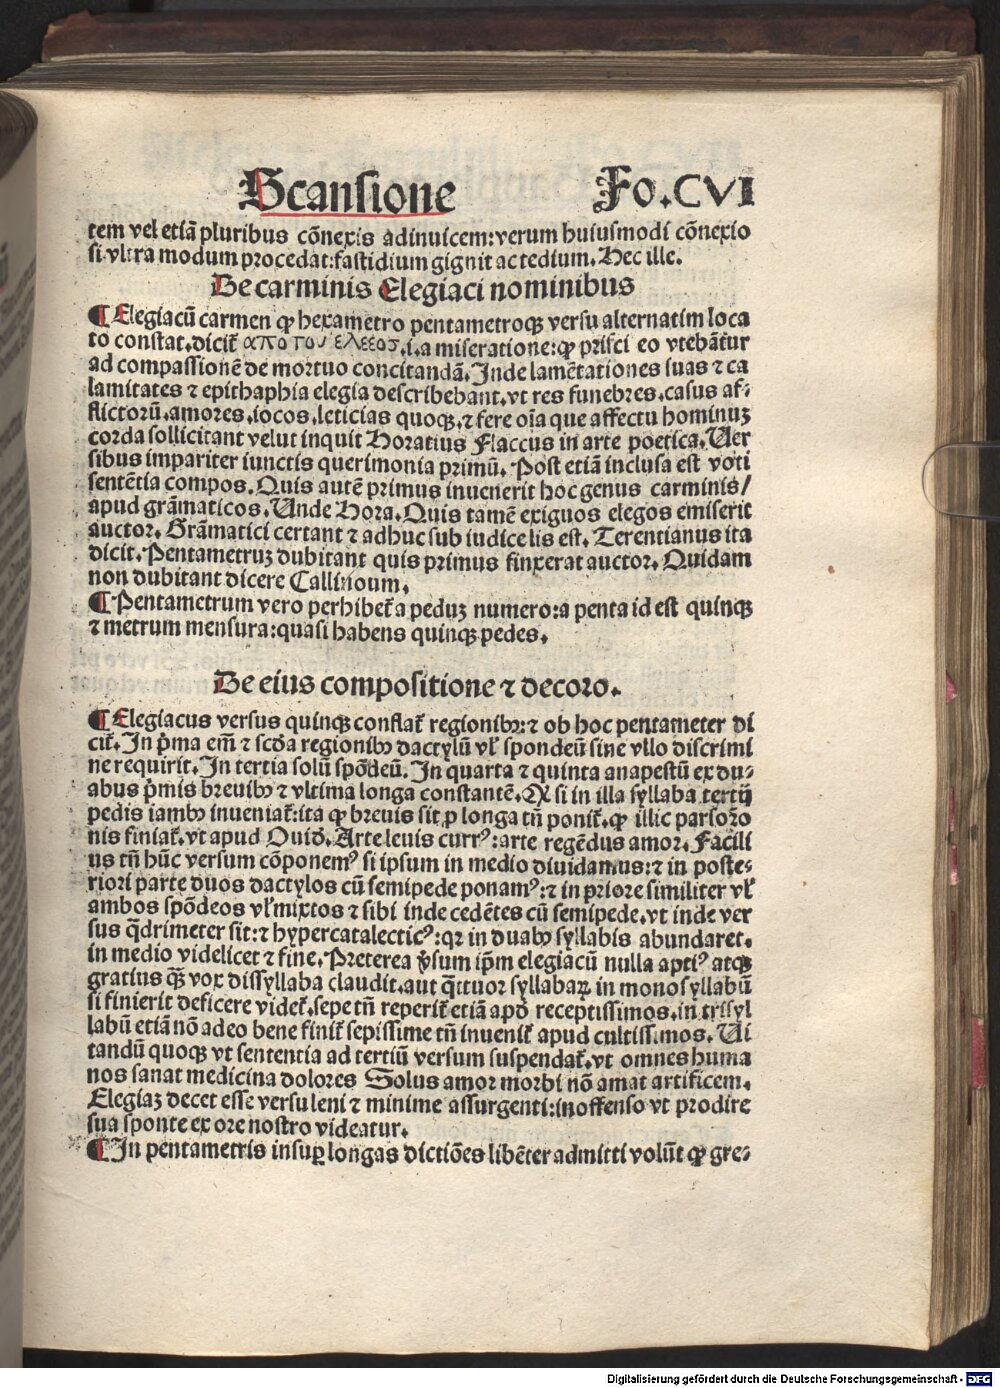 Scansione Fo.CVI
tem vel etiã pluribus cõnexis adinuicem:verum huiusmodi cõnexio
si vltra modum procedat:fastidium gignit ac tedium. Hec ille.
De carminis Elegiaci nominibus
¶ Elegiacũ carmen ꝙ hexametro pentametroqꝫ versu alternatim loca
to constat.dicit᷑ απο του ελεεος.i.a miseratione:ꝙ prisci eo vtebãtur
ad compassionẽ de mortuo concitandã. Inde lamẽtationes suas ⁊ ca
lamitates ⁊ epithaphia elegia describebant.vt res funebres.casus af⸗
flictorũ.amores.iocos.leticias quoqꝫ.⁊ fere oĩa que affectu hominuꝫ
corda sollicitant velut inquit Horatius Flaccus in arte poetica. Uer
sibus impariter iunctis querimonia primũ. Post etiã inclusa est voti
sentẽtia compos. Quis autẽ primus inuenerit hoc genus carminis/
apud grãmaticos. Unde Hora. Quis tamẽ exiguos elegos emiserit
auctor. Grãmatici certant ⁊ adhuc sub iudice lis est. Terentianus ita
dicit. Pentametruꝫ dubitant quis primus finxerat auctor. Quidam
non dubitant dicere Callinoum.
¶ Pentametrum vero perhibet᷑ a peduꝫ numero:a penta id est quinqꝫ
⁊ metrum mensura:quasi habens quinqꝫ pedes.
De eius compositione ⁊ decoro.
¶ Elegiacus versus quinqꝫ constat᷑ regionibꝰ:⁊ ob hoc pentameter di
cit᷑. In p̃ma em̃ ⁊ scďa regionibꝰ dactylũ vł spondeũ sine vllo discrimi
ne requirit. In tertia solũ spõdeũ. In quarta ⁊ quinta anapestũ ex du⸗
abus p̃mis breuibꝰ ⁊ vltima longa constantẽ. Q si in illa syllaba tertij
pedis iambꝰ inueniat᷑:ita ꝙ breuis sit ꝓ longa tñ ponit᷑.ꝙ illic pars orõ
nis finiat᷑.vt apud Ouiď. Arte leuis currꝰ:arte regẽdus amor. Facili
us tñ hũc versum cõponemꝰ si ipsum in medio diuidamus:⁊ in poste⸗
riori parte duos dactylos cũ semipede ponamꝰ:⁊ in priore similiter vł
ambos spõdeos vł mixtos ⁊ sibi inde cedẽtes cũ semipede.vt inde ver
sus q̃drimeter sit:⁊ hypercatalecticꝰ:qꝛ in duabꝰ syllabis abundaret.
in medio videlicet ⁊ fine. Preterea v̉sum ip̃m elegiacũ nulla aptiꝰ atqꝫ
gratius qꝫ̃ vox dissyllaba claudit.aut q̃ttuor syllabaꝝ in monosyllabũ
si finierit deficere videt᷑.sepe tñ reperit᷑ etiã apď receptissimos.in trisyl
labũ etiã nõ adeo bene finit᷑ sepissime tñ inuenit᷑ apud cultissimos. Ui
tandũ quoqꝫ vt sententia ad tertiũ versum suspendat᷑.vt omnes huma
nos sanat medicina dolores Solus amor morbi nõ amat artificem.
Elegiaꝫ decet esse versu leni ⁊ minime assurgenti:inoffenso vt prodire
sua sponte ex ore nostro videatur.
¶ In pentametris insuꝑ longas dictiões libẽter admitti volũt ꝙ gre⸗
Digitalisierung gefördert durch die Deutsche Forschungsgemeinschaft - DFG